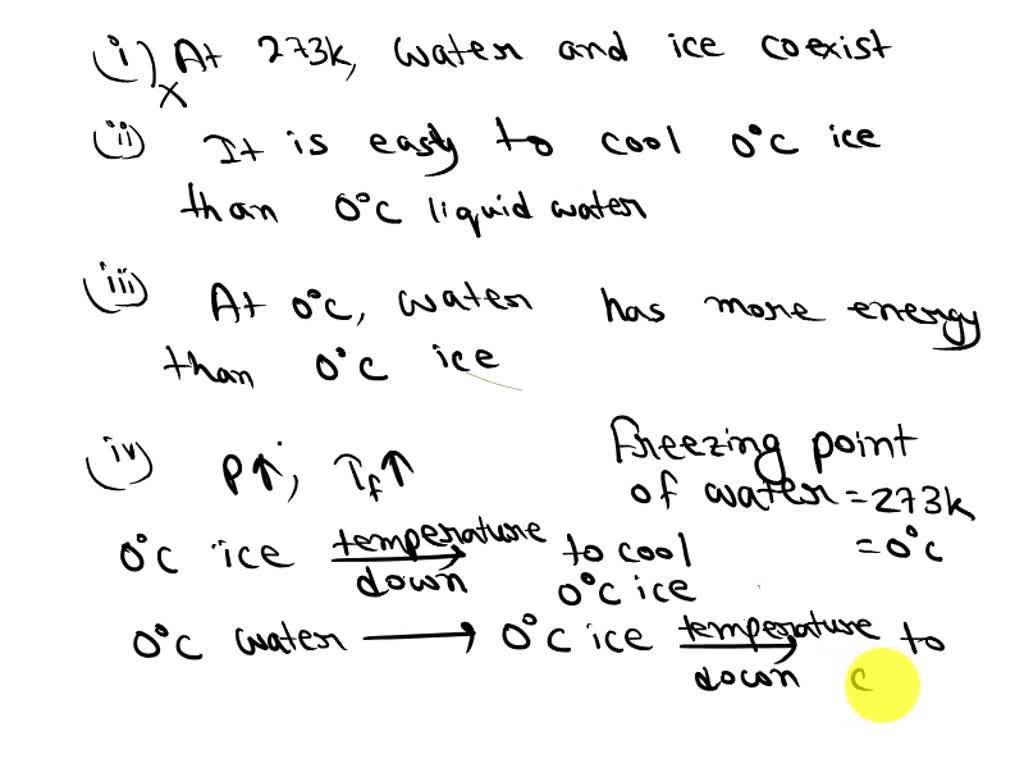 (i) At 273k, water and ice coexist
x
(ii) It is easy to cool 0°c ice
than 0°c liquid water
(iii) At 0°c, water has more energy
than 0°c ice
(iv) P↑, Tf↑
Freezing point
of water = 273k
= 0°c
0°c ice temperature down to cool
0°c ice
0°c water → 0°c ice temperature down to
c